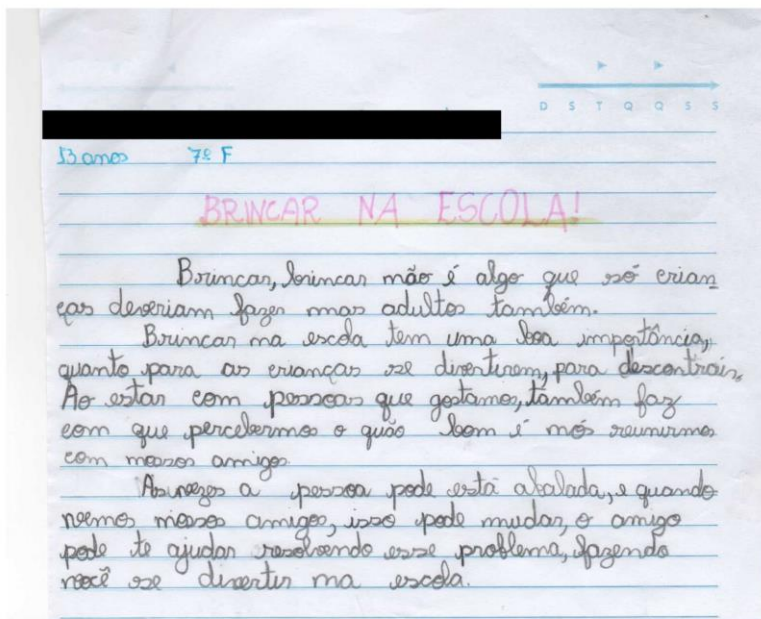 D S T Q Q S S
13 anos 7º F
BRINCAR NA ESCOLA!
Brincar, brincar não é algo que só crian
ças deveriam fazer mas adultos também.
Brincar na escola tem uma boa importância,
quanto para as crianças se divertirem, para descontrair,
Ao estar com pessoas que gostamos, também faz
com que percebermos o quão bom é nós reunirmos
com nossos amigos.
As vezes a pessoa pode está abalada, e quando
vemos nossos amigos, isso pode mudar, o amigo
pode te ajudar resolvendo esse problema, fazendo
você se divertir na escola.